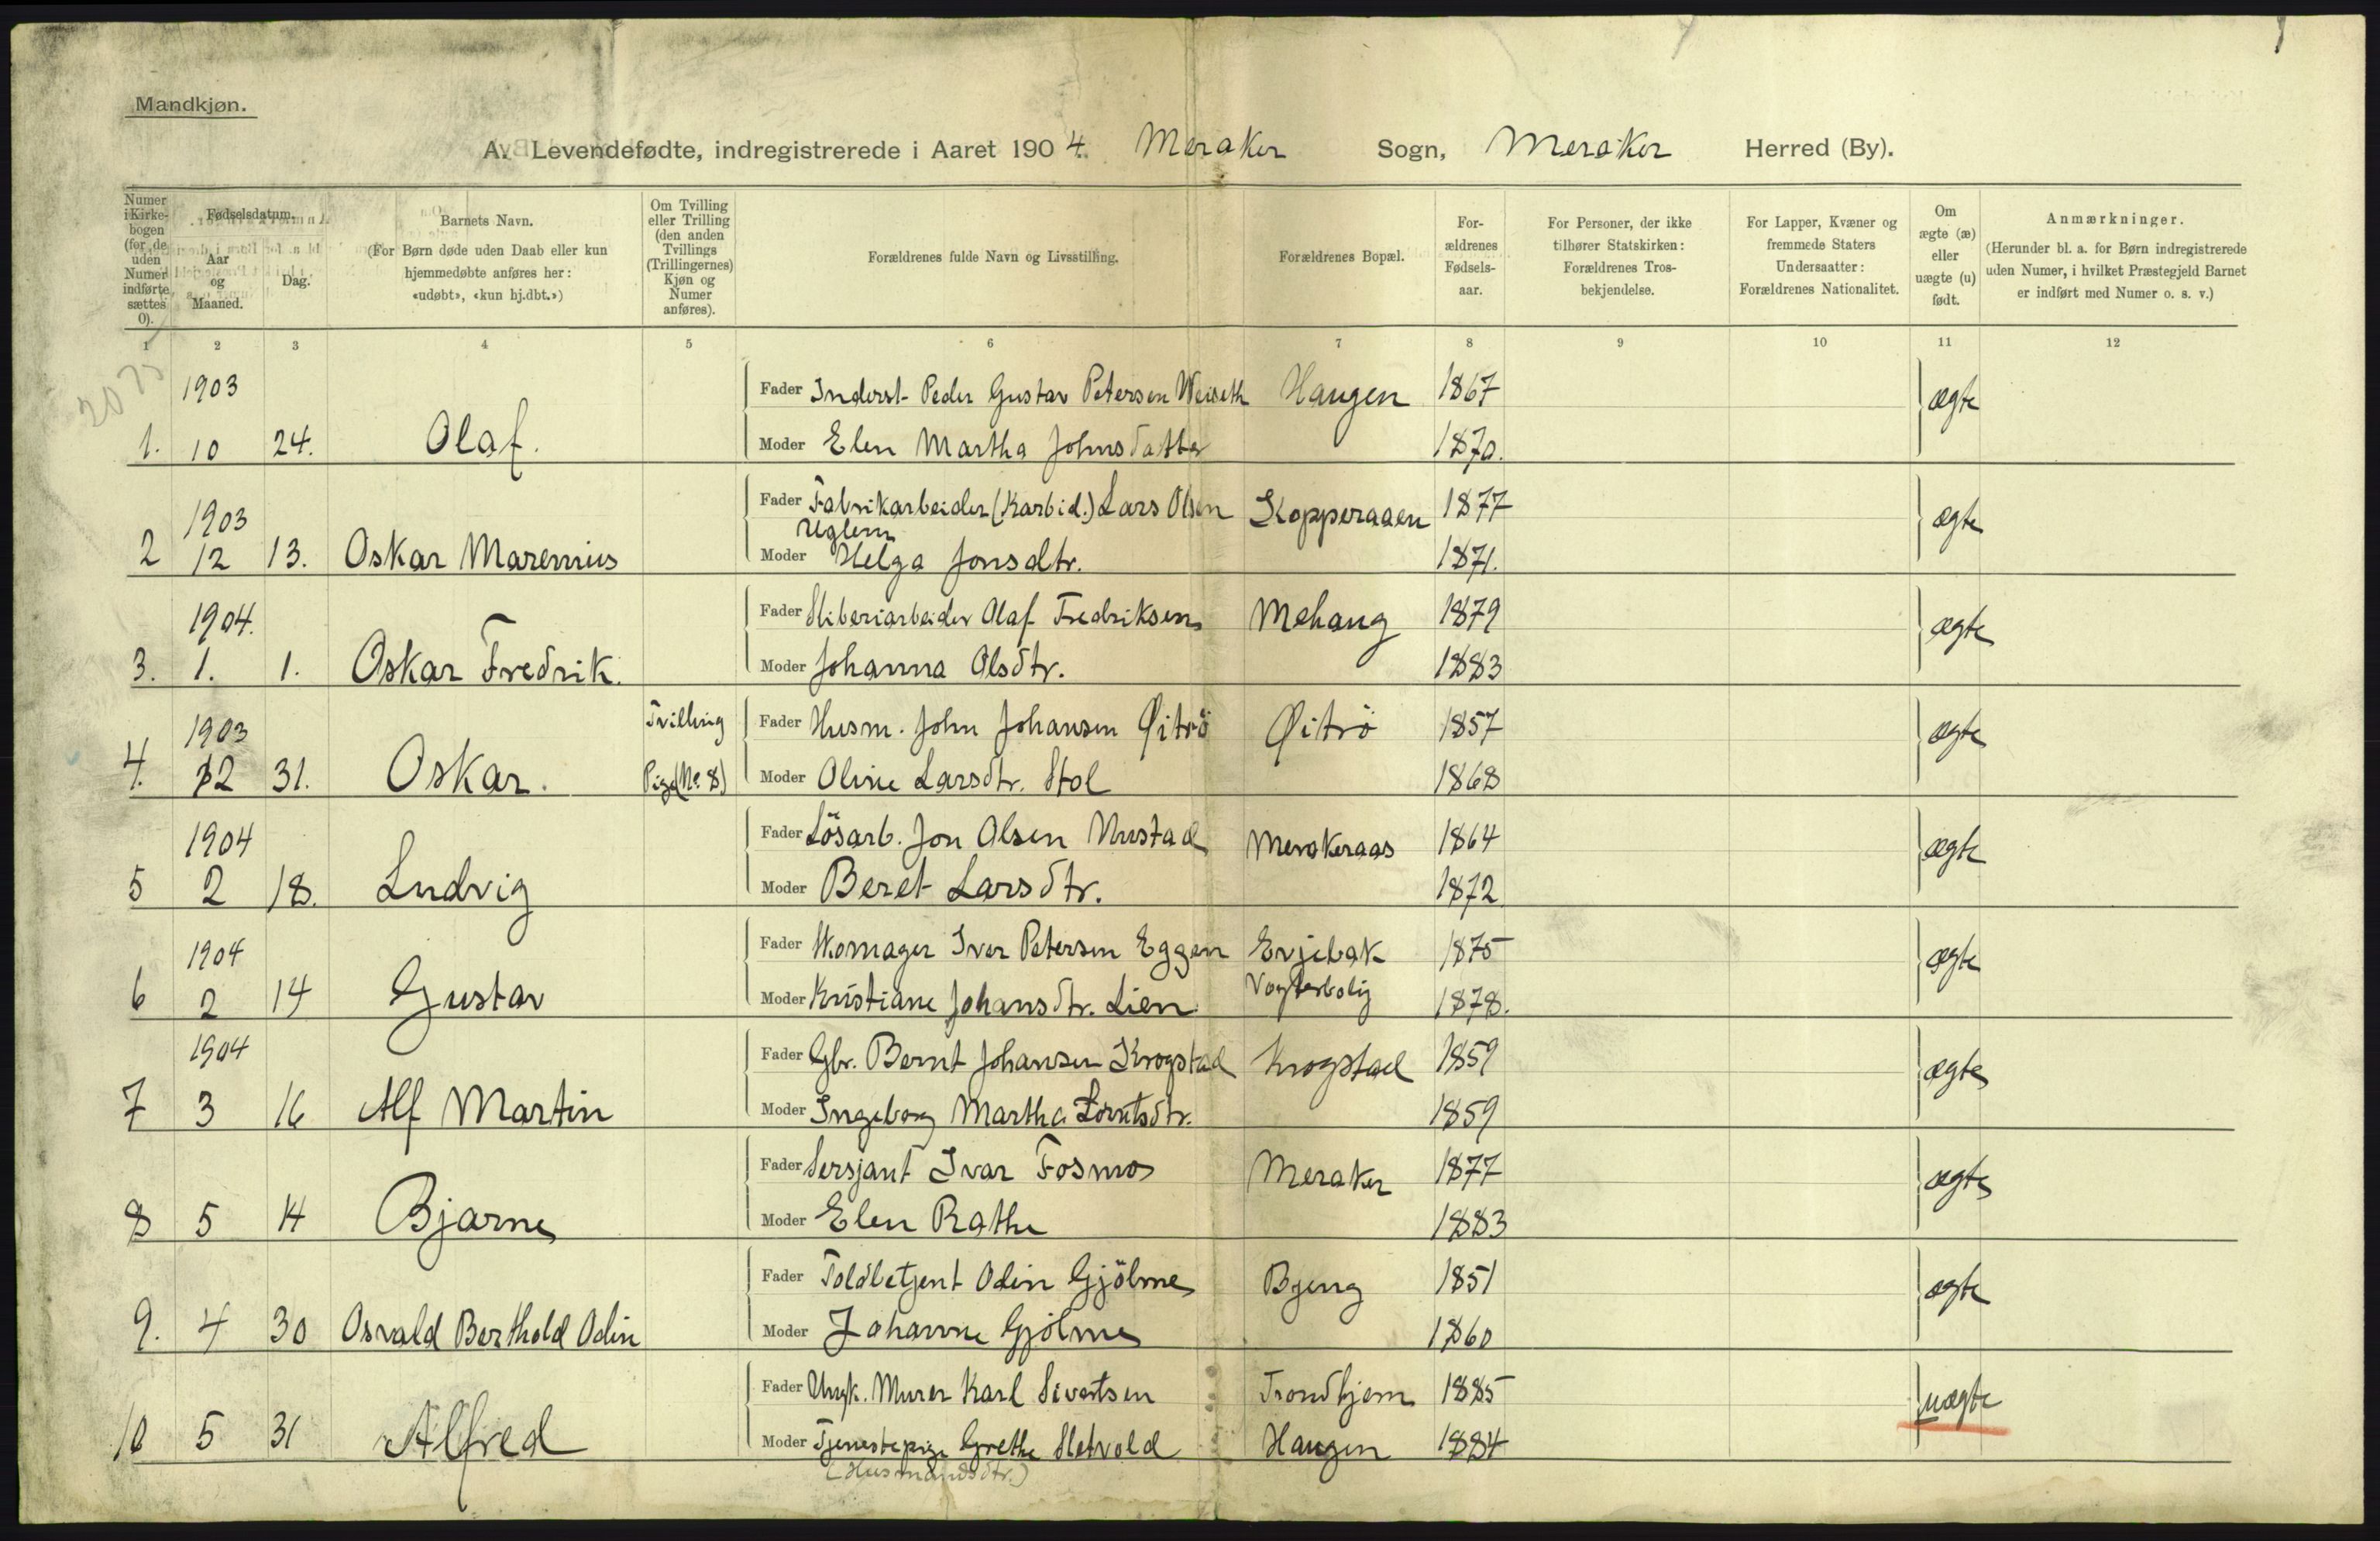 Mandkjøn.
A. Levendefødte, indregistrerede i Aaret 1904. Meraker Sogn, Meraker Herred (By).
Numer i Kirkebogen (for de uden Numer indførte sættes 0).
Fødselsdatum.
Aar og Maaned.
Dag.
Barnets Navn.
(For Børn døde uden Daab eller kun hjemmedøbte anføres her: «udøbt», «kun hj.dbt.»)
Om Tvilling eller Trilling (den anden Tvillings (Trillingernes) Kjøn og Numer anføres).
Forældrenes fulde Navn og Livsstilling.
Forældrenes Bopæl.
Forældrenes Fødselsaar.
For Personer, der ikke tilhører Statskirken: Forældrenes Trosbekjendelse.
For Lapper, Kvæner og fremmede Staters Undersaatter: Forældrenes Nationalitet.
Om ægte (æ) eller uægte (u) født.
Anmærkninger.
(Herunder bl. a. for Børn indregistrerede uden Numer, i hvilket Præstegjeld Barnet er indført med Numer o. s. v.)
1 2 3 4 5 6 7 8 9 10 11 12
1903 Fader Inderst Peder Gustav Petersen Weiseth Haugen 1867 ægte
1. 10 24. Olaf. Moder Elen Martha Johnsdatter 1870.
1903 Fader Fabrikarbeider (Karbid.) Lars Olsen Kopperaaen 1877 ægte
Uglem
2 12 13. Oskar Marenius Moder Helga Jonsdtr. 1871.
1904. Fader Sliberiarbeider Olaf Fredriksen Mehaug 1879 ægte
3. 1. 1. Oskar Fredrik. Moder Johanna Olsdtr. 1883
1903 Tvilling Fader Husm. John Johansen Øitrö Øitrö 1857 ægte
4. 12 31. Oskar. Pige (No. 8) Moder Oline Larsdtr. Stol 1868
1904 Fader Lösarb. Jon Olsen Mustad Merakeraas 1864 ægte
5 2 18. Ludvig Moder Beret Larsdtr. 1872
1904 Fader Skomager Iver Petersen Eggen Evjebak 1875 ægte
6 2 14 Gustav Moder Kristiane Johansdtr. Lien Vogterbolig 1878.
1904 Fader Gbr. Bernt Johansen Krogstad Krogstad 1859 ægte
7 3 16 Alf Martin Moder Ingeborg Martha Lorntsdtr. 1859
Fader Sersjant Ivar Fosmo Meraker 1877 ægte
8 5 14 Bjarne Moder Elen Rathe 1883
Fader Toldbetjent Odin Gjölme Bjerg 1851 ægte
9. 4 30 Osvald Berthold Odin Moder Johanne Gjölme 1860
Fader Ungk. Murer Karl Sivertsen Trondhjem 1885 uægte
10 5 31 Alfred Moder Tjenestepige Grethe Sletvold Haugen 1884
(Husmandsdtr.)